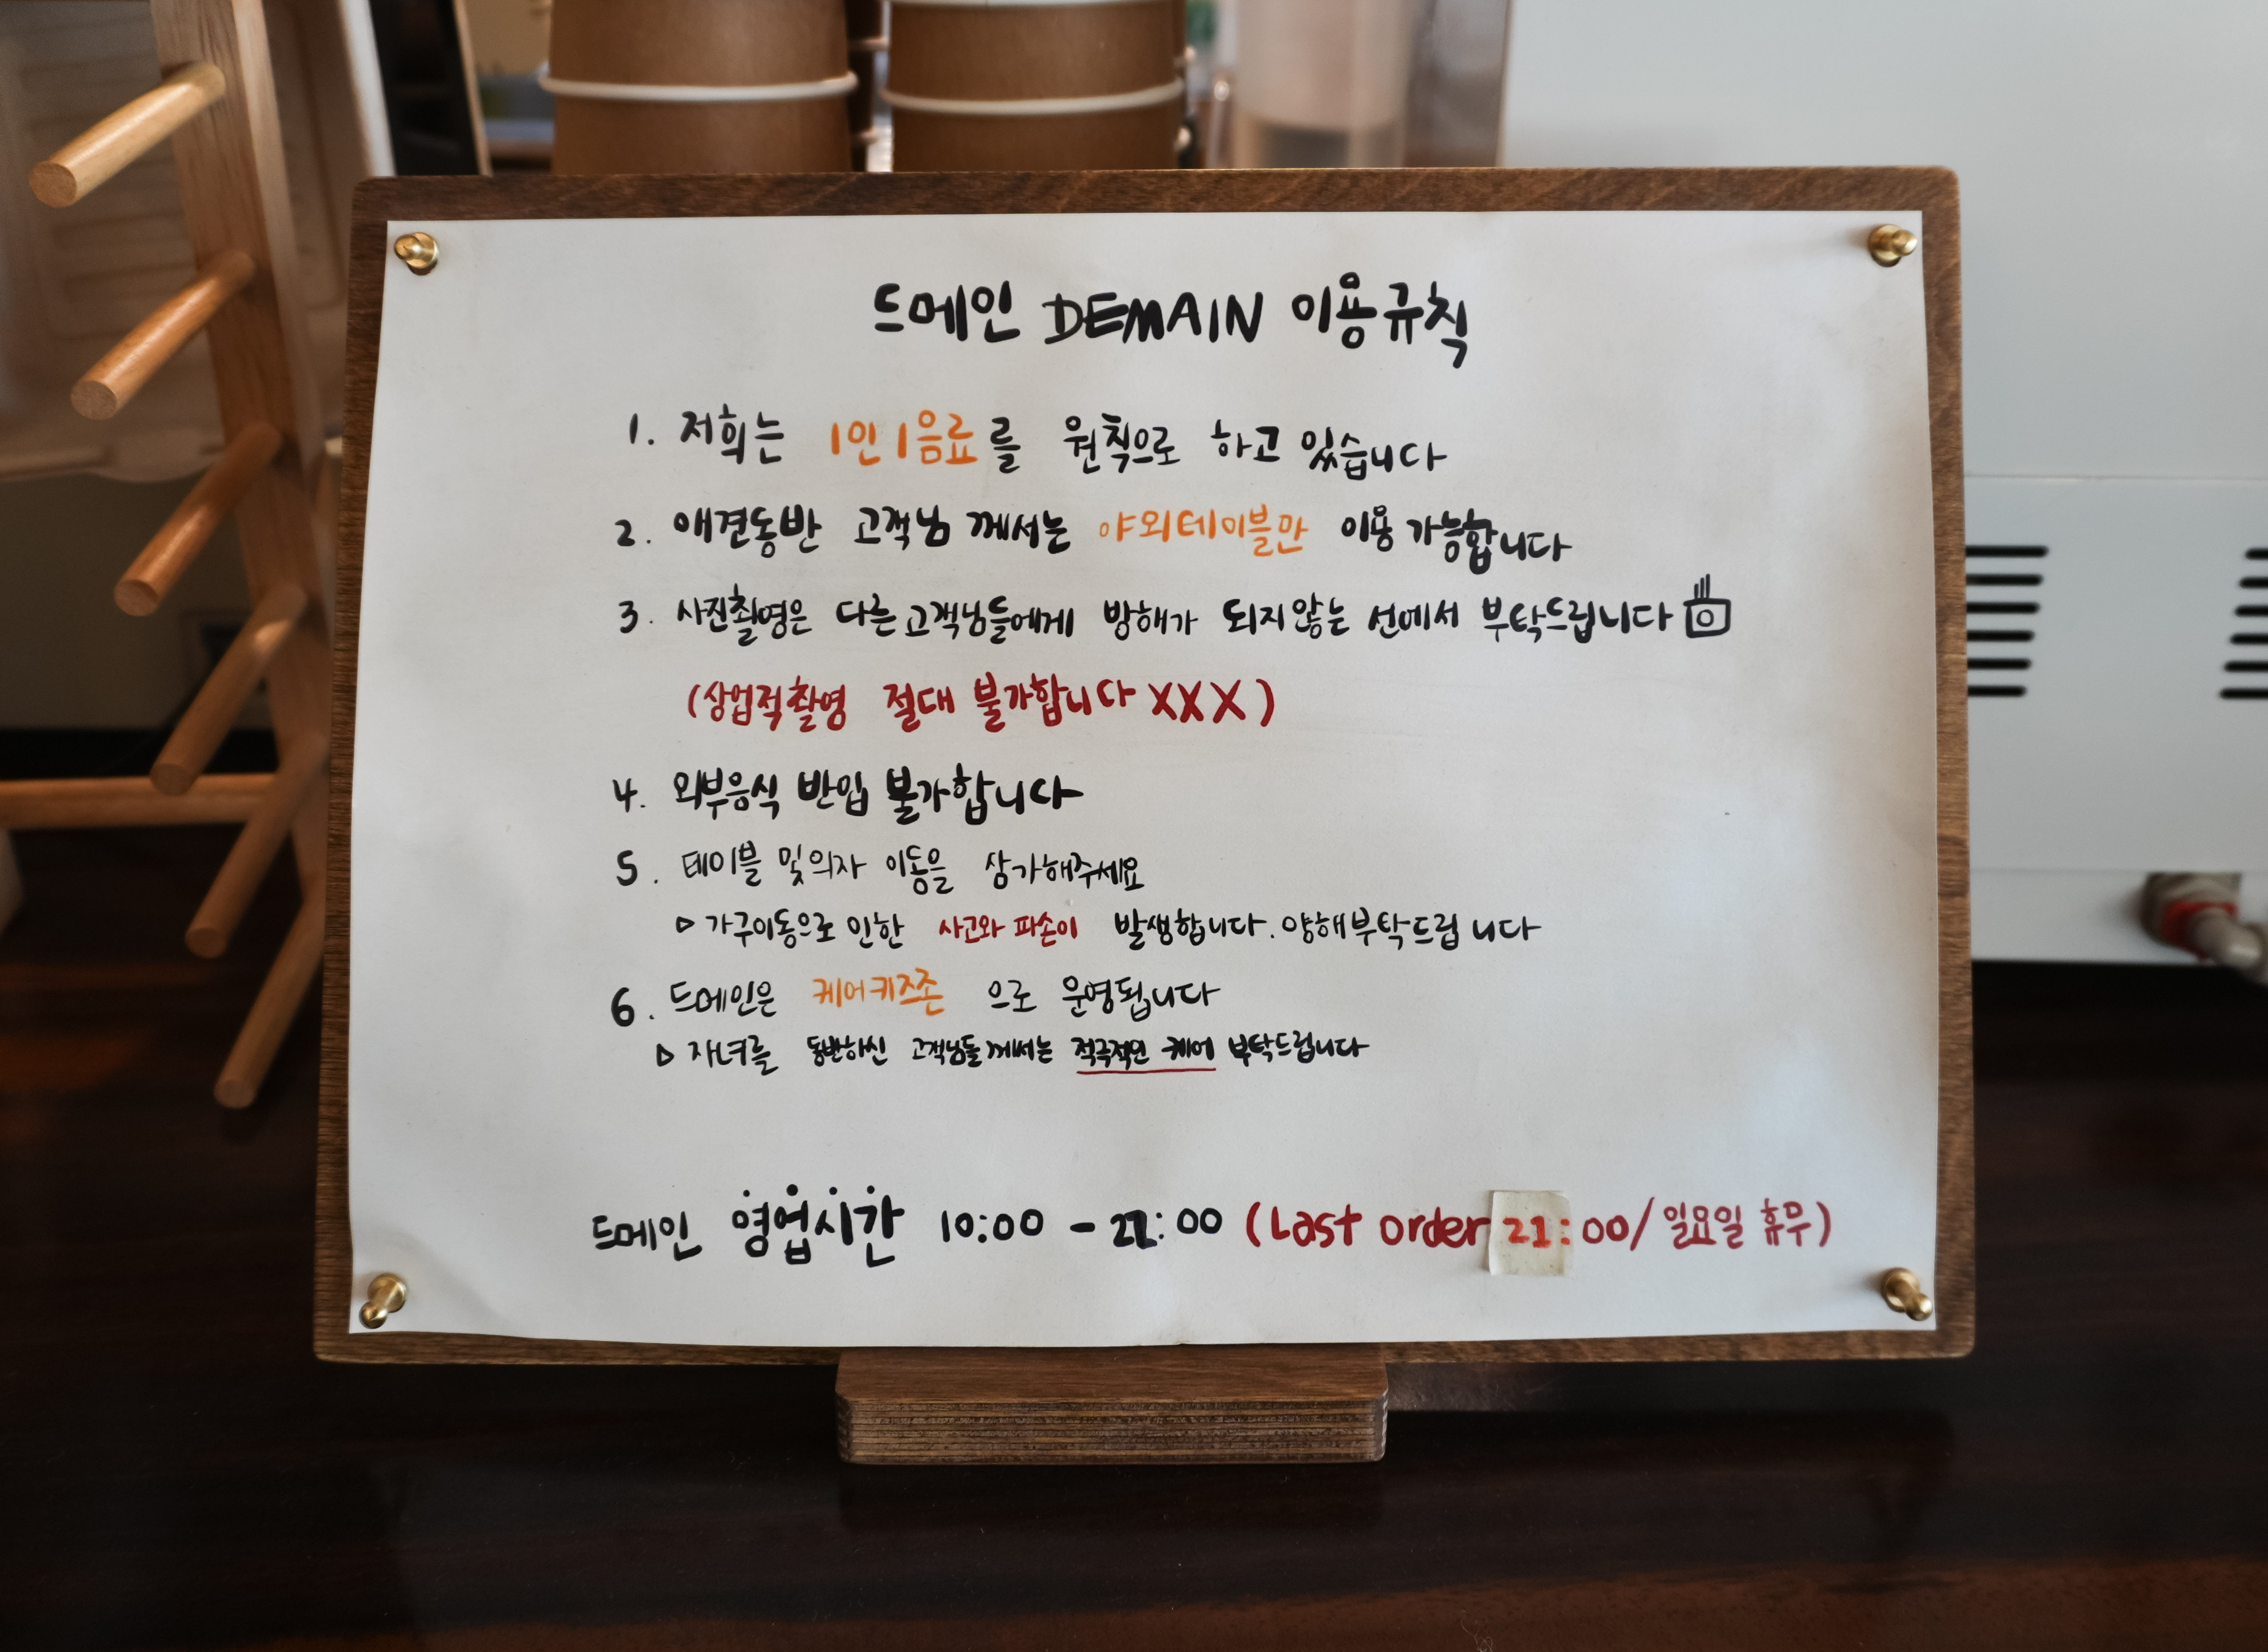 드메인 DEMAIN 이용규칙
1. 저희는 1인 1음료를 원칙으로 하고 있습니다
2. 애견동반 고객님 께서는 야외테이블만 이용 가능합니다
3. 사진촬영은 다른고객님들에게 방해가 되지않는 선에서 부탁드립니다
(상업적촬영 절대 불가합니다 XXX)
4. 외부음식 반입 불가합니다
5. 테이블 및 의자 이동을 삼가해주세요
▷ 가구이동으로 인한 사고와 파손이 발생합니다. 양해부탁드립니다
6. 드메인은 케어키즈존 으로 운영됩니다
▷ 자녀를 동반하신 고객님들께서는 적극적인 케어 부탁드립니다
드메인 영업시간 10:00 - 22:00 (Last order 21:00/ 일요일 휴무)